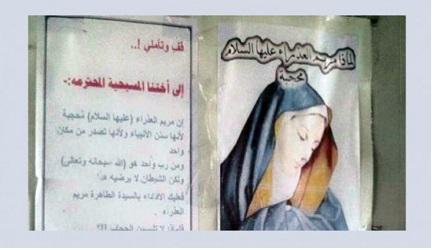 قفِ وتأملي !..
إلى أختنا المسيحية المحترمة:-
إن مريم العذراء (عليها السلام) مُحجبة
لأنها سنن الأنبياء ولأنها تصدر من مكان
واحد
ومن رب واحد هو (الله سبحانه وتعالى)
ولكن الشيطان لا يرضيه هذا
فعليك الاقتداء بالسيدة الطاهرة مريم
العذراء .
فلماذا لا تلبسين الحجاب !!؟
لماذا مريم العذراء عليها السلام
محجبة